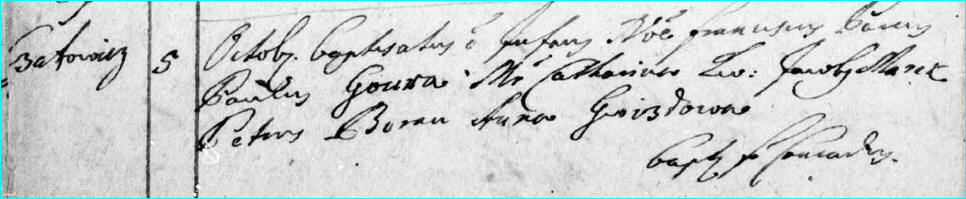 Zatowicz 5 Octobr. baptisatus ē Infans Nõē Franciscus Parens
Paulus Goura Mr Catharina Lev: Jacobg Marek
Petrus Boran Anna Gwizdowa
bapt. fr